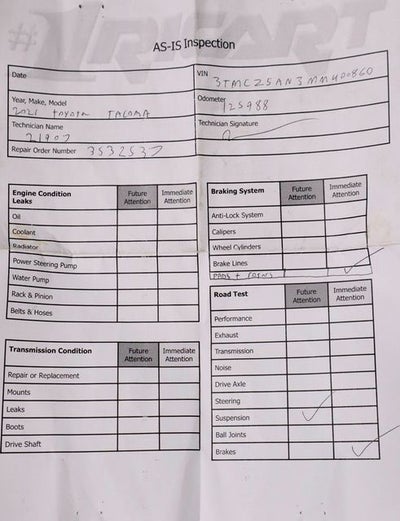 AS-IS Inspection
Date
VIN 3TMCZ5AN3MM400860
Year, Make, Model
2021 TOYOTA TACOMA
Odometer
125988
Technician Name
21907
Technician Signature
Repair Order Number 3532537
Engine Condition
Leaks
Future Attention
Immediate Attention
Oil
Coolant
Radiator
Power Steering Pump
Water Pump
Rack & Pinion
Belts & Hoses
Braking System
Future Attention
Immediate Attention
Anti-Lock System
Calipers
Wheel Cylinders
Brake Lines
PADS +
Transmission Condition
Future Attention
Immediate Attention
Repair or Replacement
Mounts
Leaks
Boots
Drive Shaft
Road Test
Future Attention
Immediate Attention
Performance
Exhaust
Transmission
Noise
Drive Axle
Steering
Suspension
Ball Joints
Brakes